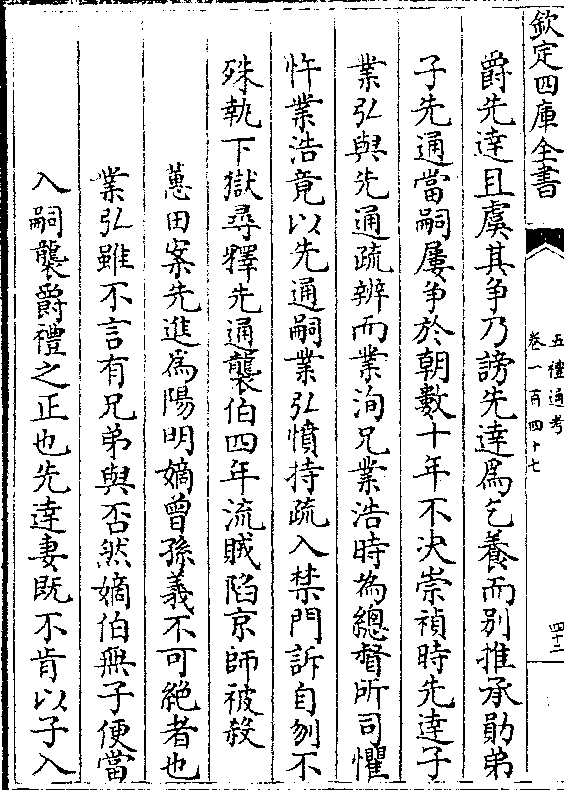 欽定四庫全書
五禮通考
卷一百四十七
四十二
爵先達且虞其爭乃謗先達為乞養而別推承勛弟
子先通當嗣屢爭於朝數十年不決崇禎時先達子
業弘與先通疏辨而業洵兄業浩時為總督所司懼
忤業浩竟以先通嗣業弘憤持疏入禁門訴自刎不
殊執下獄尋釋先通襲伯四年流賊陷京師被殺
蕙田案先進為陽明嫡曾孫義不可絶者也
業弘雖不言有兄弟與否然嫡伯無子便當
入嗣襲爵禮之正也先達妻既不肯以子入